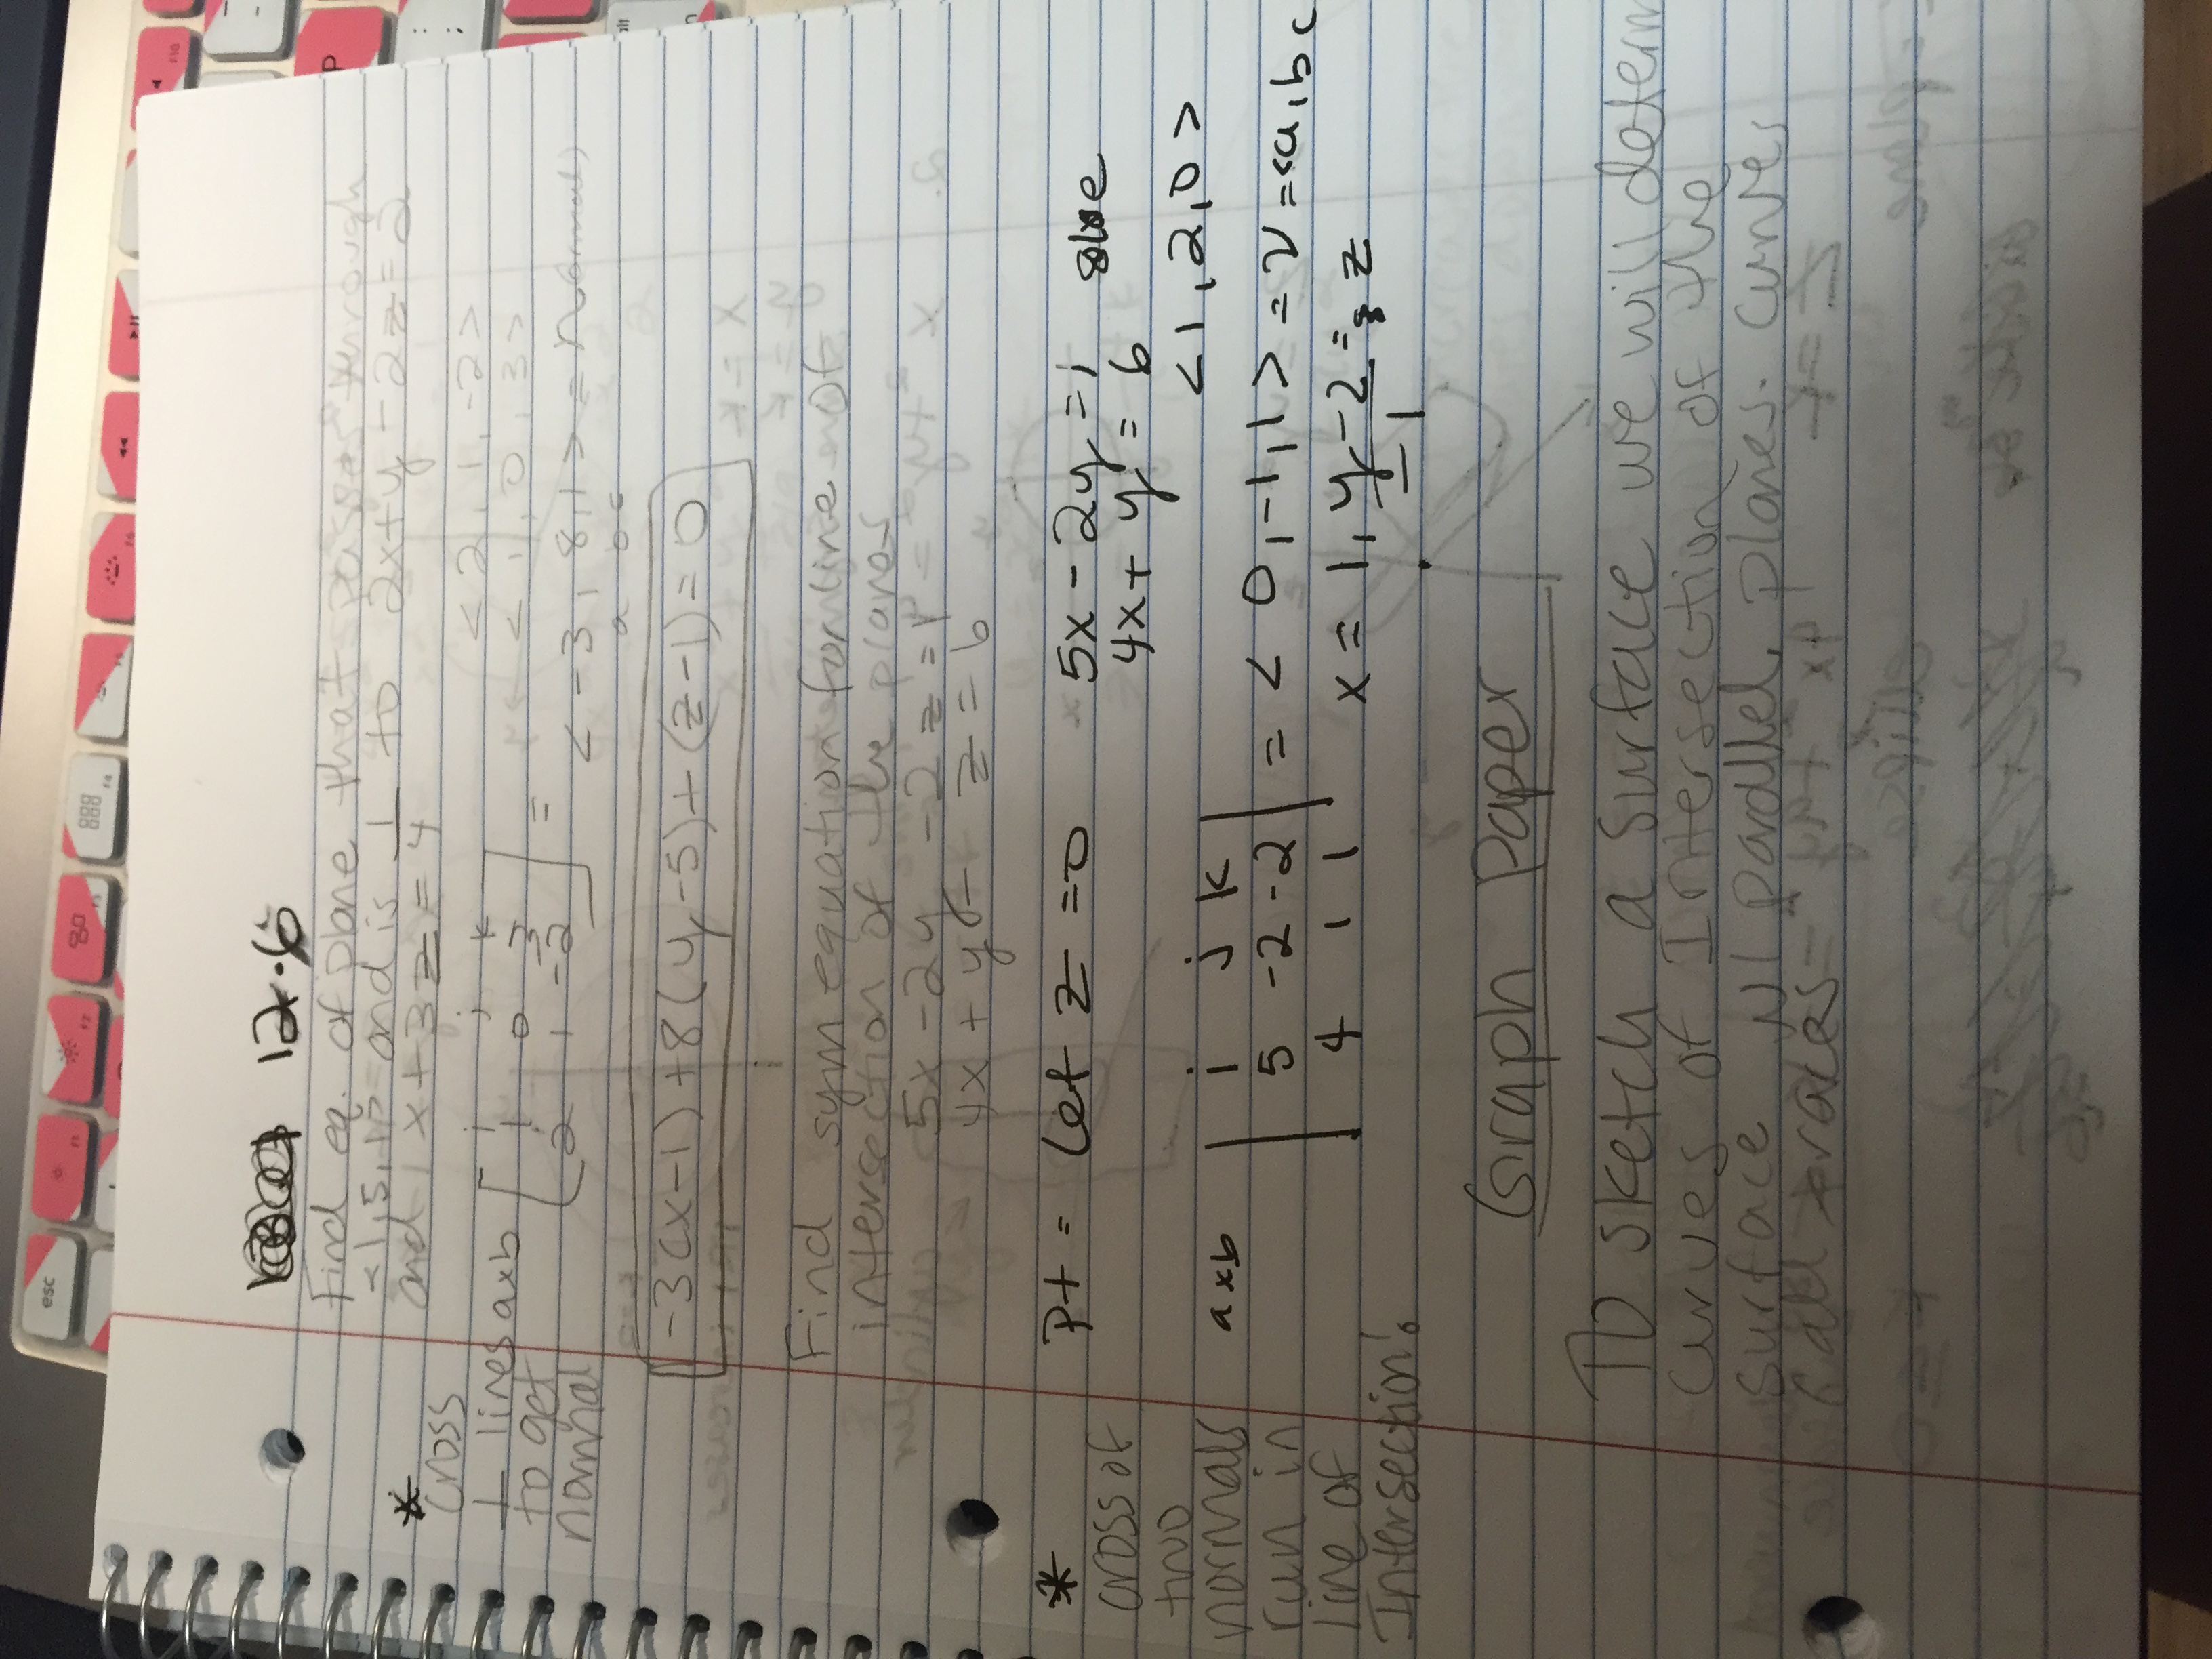 12.6
Find eq. of plane that passes through
<1,5,1> and is ⊥ to 2x+y-2z=2
and x+3z=4
* cross
⊥ lines
to get
normal
axb
i j k
1 0 3
2 1 -2
=
<2,1,-2>
<1,0,3>
<-3,8,1> = normal
a b c
-3(x-1)+8(y-5)+(z-1)=0
Find sym equations for line
intersection of the planes
5x-2y-2z=1
4x+y+z=6
* cross of
two
normals
run in
line of
Intersection!
Pt = Let z=0
5x-2y=1 solve
4x+y=6
<1,2,0>
axb
i j k
5 -2 -2
4 1 1
= <0,-1,1> = v = <a,b,c
x=1, y-2 = z
-1
Graph Paper
To sketch a surface we will determ
curves of Intersection of the
surface w/ parallel planes. Curves
esc
F10
P
alt